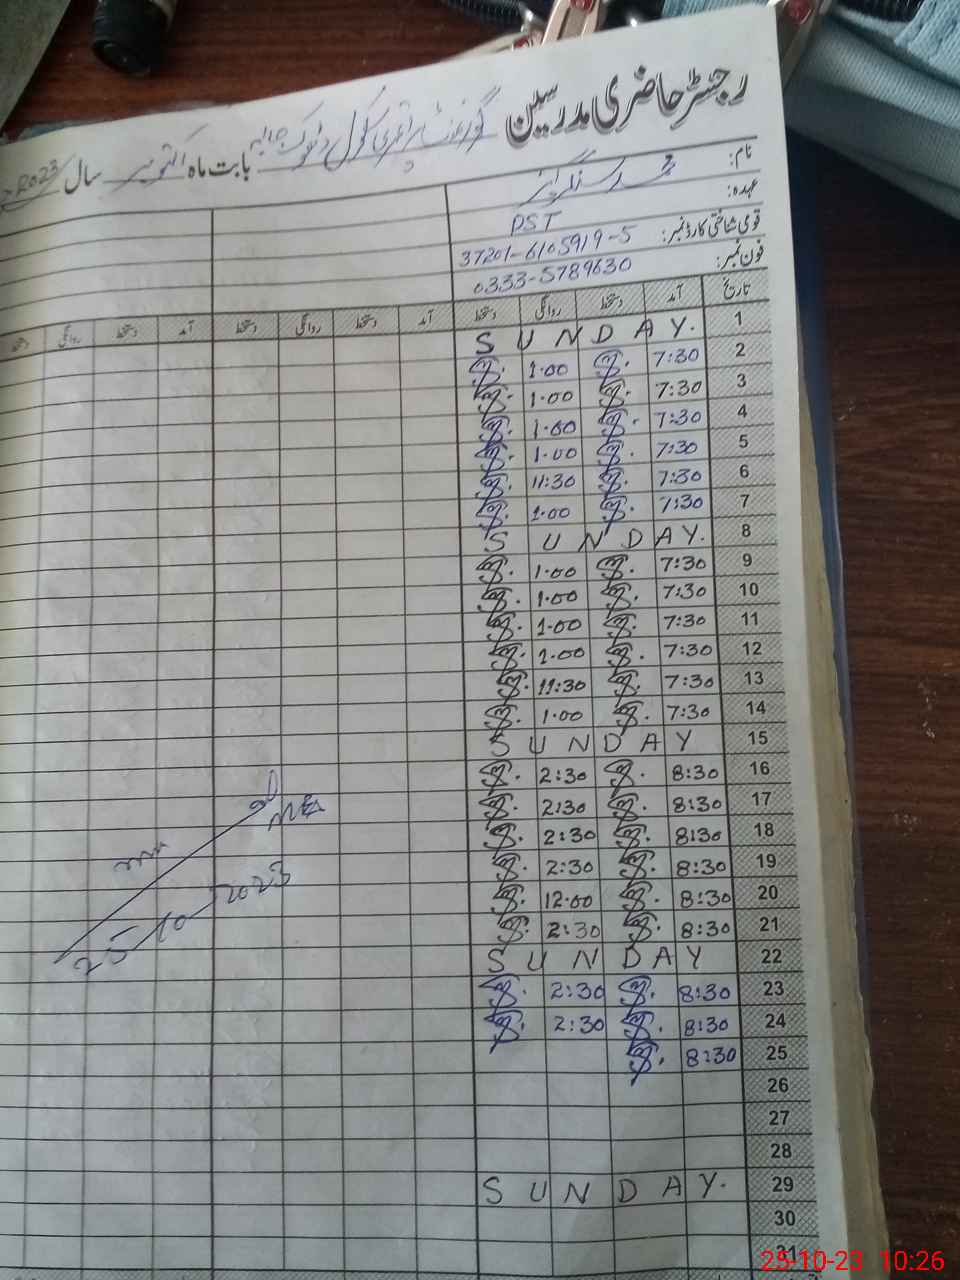 رجسٹر حاضری مدرسین گورنمنٹ پرائمری سکول ڈھوک بابت ماہ اکتوبر سال 2023
نام: محمد
عہدہ: PST
قومی شناختی کارڈ نمبر: 37201-6105919-5
فون نمبر: 0333-5789630
تاریخ آمد دستخط روانگی دستخط آمد دستخط روانگی دستخط آمد دستخط روانگی دستخط
1 SUNDAY.
2 7:30 1.00
3 7:30 1.00
4 7:30 1.00
5 7:30 1.00
6 7:30 11:30
7 7:30 1.00
8 SUNDAY.
9 7:30 1.00
10 7:30 1.00
11 7:30 1.00
12 7:30 1.00
13 7:30 11:30
14 7:30 1.00
15 SUNDAY
16 8:30 2:30
17 8:30 2:30
18 8:30 2:30
19 8:30 2:30
20 8:30 12:00
21 8:30 2:30
22 SUNDAY
23 8:30 2:30
24 8:30 2:30
25 8:30
26
27
28
29 SUNDAY.
30
31
MEA
25-10-2023
25-10-23 10:26